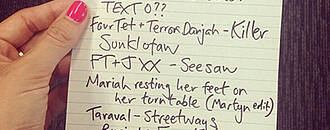 TEXT O??
FourTet + Terror Danjah - Killer
Sunklofan
FT + J XX - Seesaw
Mariah resting her feet on
her turntable (Martyn edit)
Taraval - Streetways